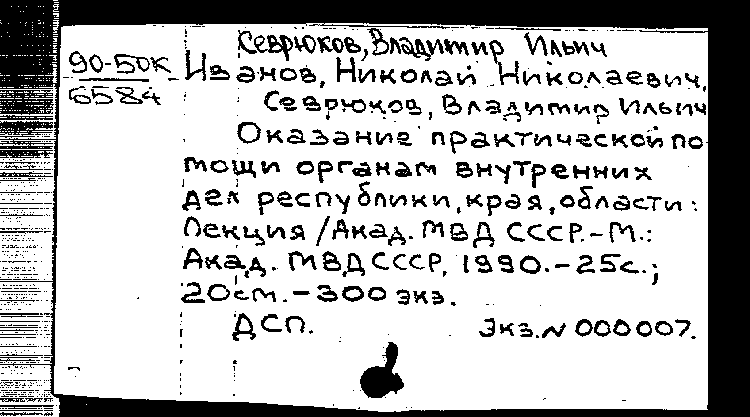 Севрюков, Владимир Ильич
90-50к Иванов, Николай Николаевич,
6584 Севрюков, Владимир Ильич
Оказание практической по
мощи органам внутренних
дел республики, края, области:
Лекция /Акад. МВД СССР.-М.:
Акад. МВД СССР, 1990.-25с.;
20см.-300 экз.
ДСП. Экз.№ 000007.